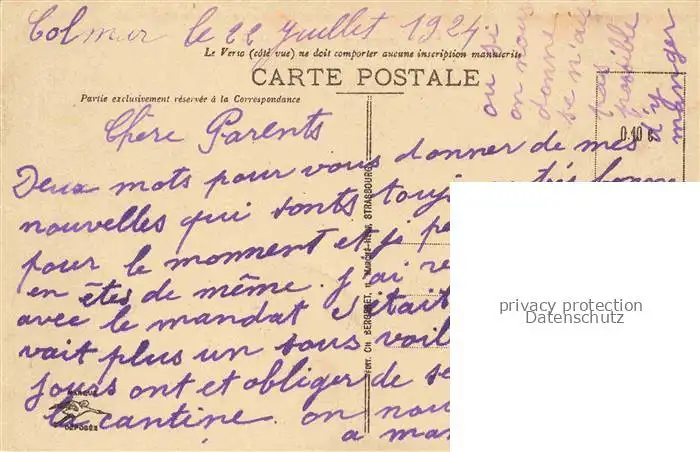 Colmar le 22 Juillet 1924.
Le Verso (côté vue) ne doit comporter aucune inscription manuscrite
CARTE POSTALE
Partie exclusivement réservée à la Correspondance
0.10 c.
Chère Parents
Deux mots pour vous donner de mes
nouvelles qui sonts toujours très bonne
pour le monment et j'
en êtes de même. J'ai
avec le mandat s'était
vait plus un sous
jours ont et obliger de
la cantine. on
a
ou si
on nous
donne
se n'ai
pas
possible
d'y
manger
EDIT. CH. BERGERET, MARCHÉ-NEUF, STRASBOURG
MARQUE
DÉPOSÉE
privacy protection
Datenschutz